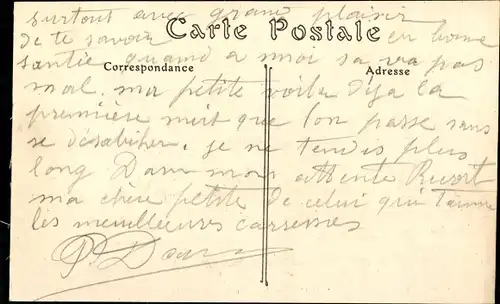 surtout avec grand plaisir
Carte Postale
de te savoir en bonne
santé quand a moi sa va pas
Correspondance
Adresse
mal. ma petite voila déja la
première nuit que l'on passe sans
se désabiller, je ne
plus
long Dans mon attente Reçoit
ma chère petite de celui qui t'aime
les meuilleures caresses